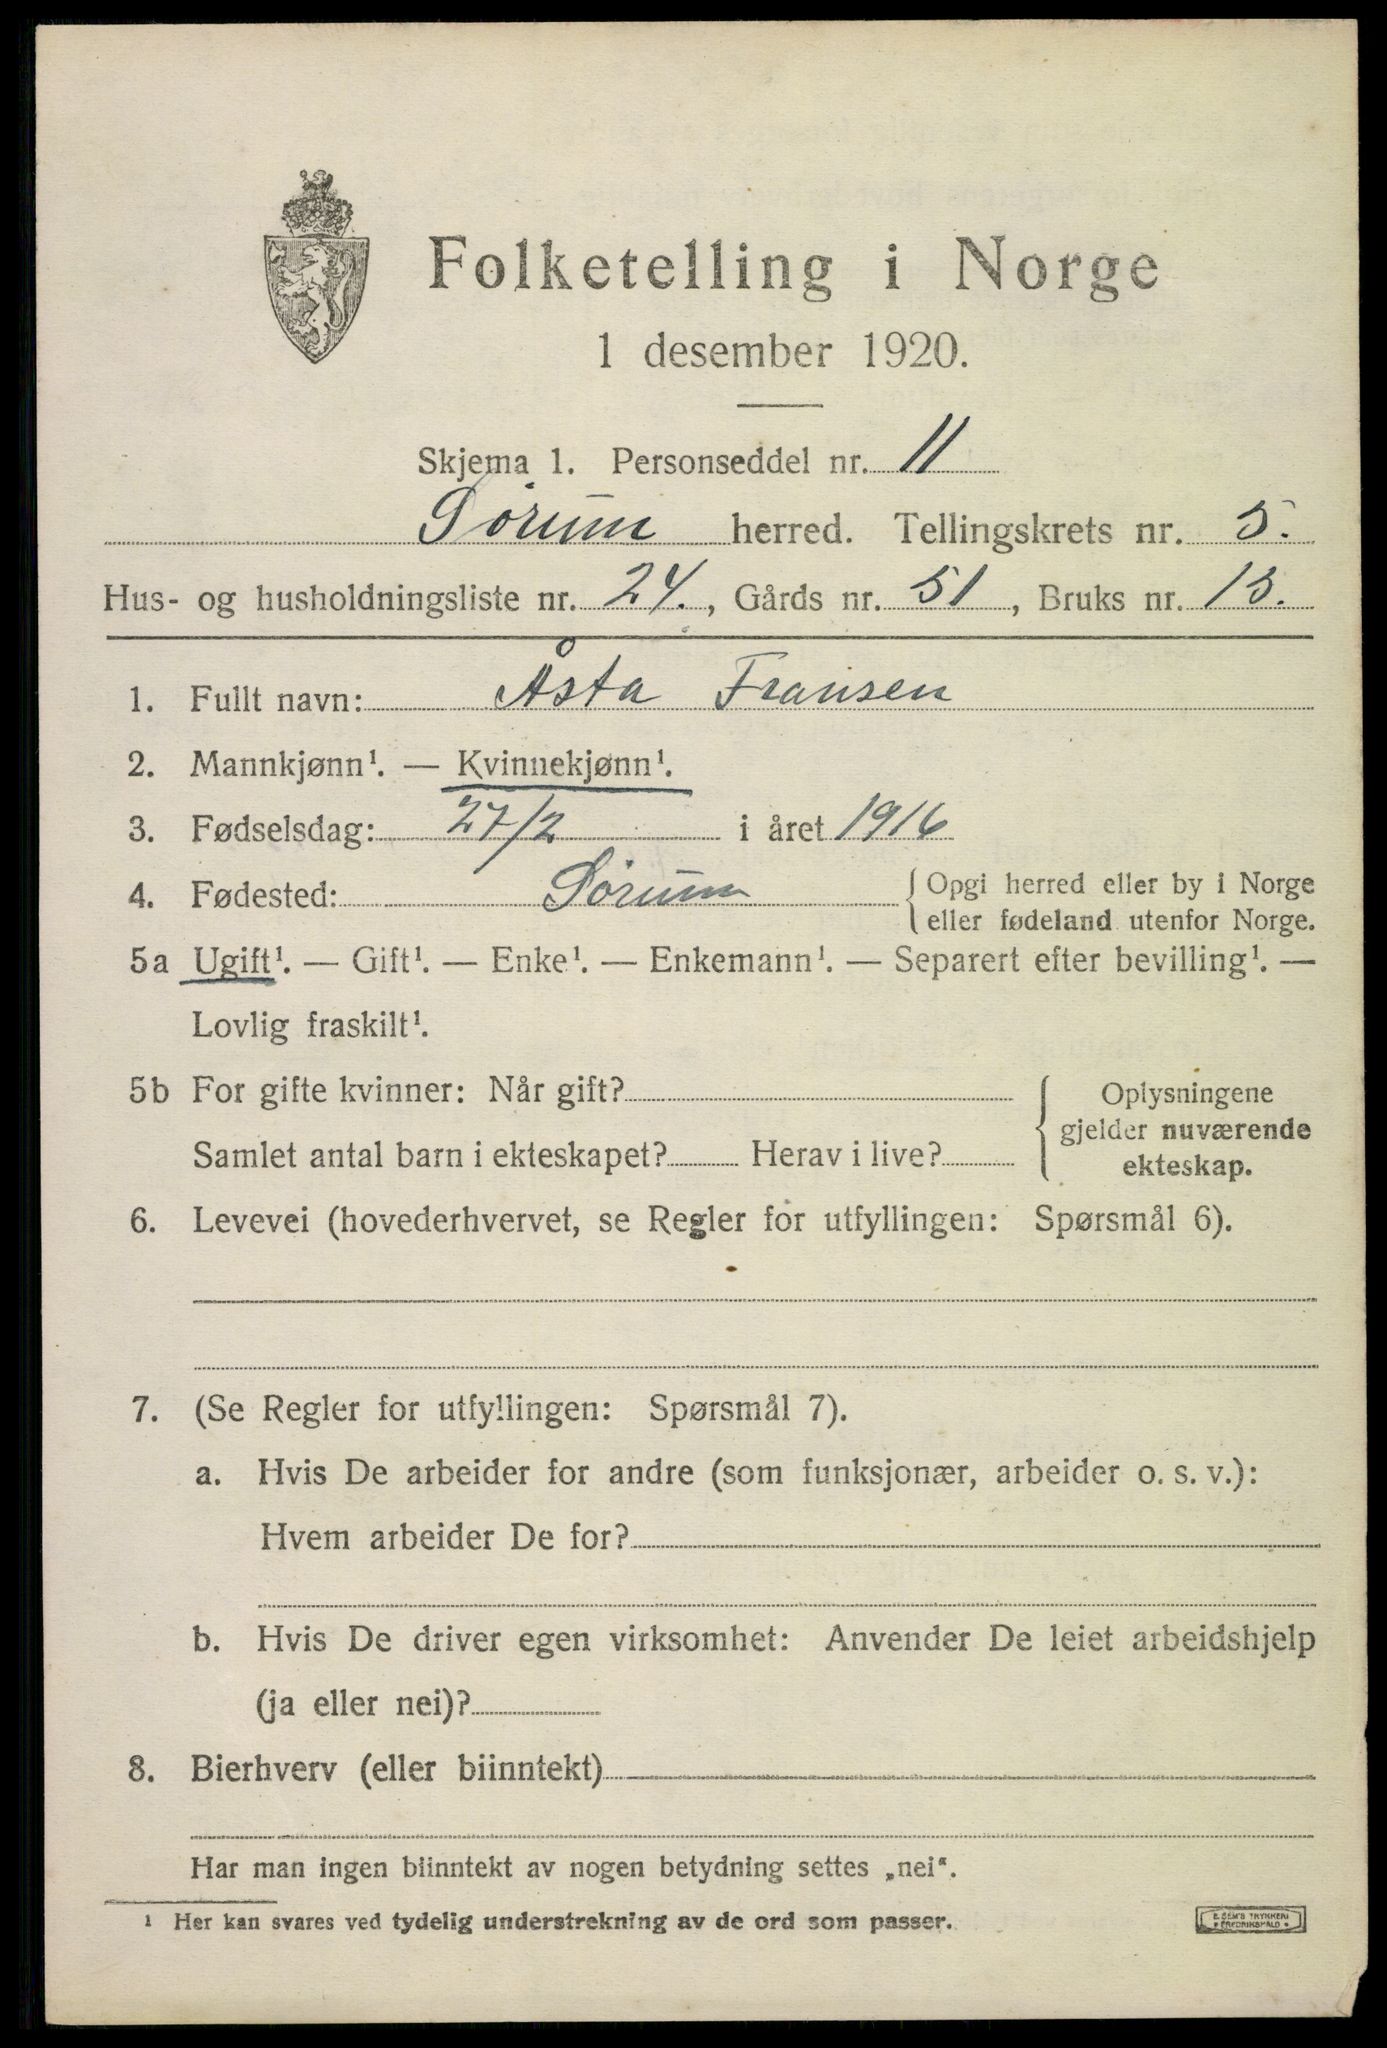 Folketelling i Norge
1 desember 1920.
Skjema 1. Personseddel nr. 11
Sørum herred. Tellingskrets nr. 5.
Hus- og husholdningsliste nr. 24., Gårds nr. 51, Bruks nr. 13.
1. Fullt navn: Åsta Fransen
2. Mannkjønn¹. — Kvinnekjønn¹.
3. Fødselsdag: 27/2 i året 1916
4. Fødested: Sørum { Opgi herred eller by i Norge
eller fødeland utenfor Norge.
5a Ugift¹. — Gift¹. — Enke¹. — Enkemann¹. — Separert efter bevilling¹. —
Lovlig fraskilt¹.
5b For gifte kvinner: Når gift?
Samlet antal barn i ekteskapet? Herav i live?
{ Oplysningene
gjelder nuværende
ekteskap.
6. Levevei (hovederhvervet, se Regler for utfyllingen: Spørsmål 6).
7. (Se Regler for utfyllingen: Spørsmål 7).
a. Hvis De arbeider for andre (som funksjonær, arbeider o. s. v.):
Hvem arbeider De for?
b. Hvis De driver egen virksomhet: Anvender De leiet arbeidshjelp
(ja eller nei)?
8. Bierhverv (eller biinntekt)
Har man ingen biinntekt av nogen betydning settes „nei“.
¹ Her kan svares ved tydelig understrekning av de ord som passer.
E. SEM'S TRYKKERI
• FREDRIKSHALD •